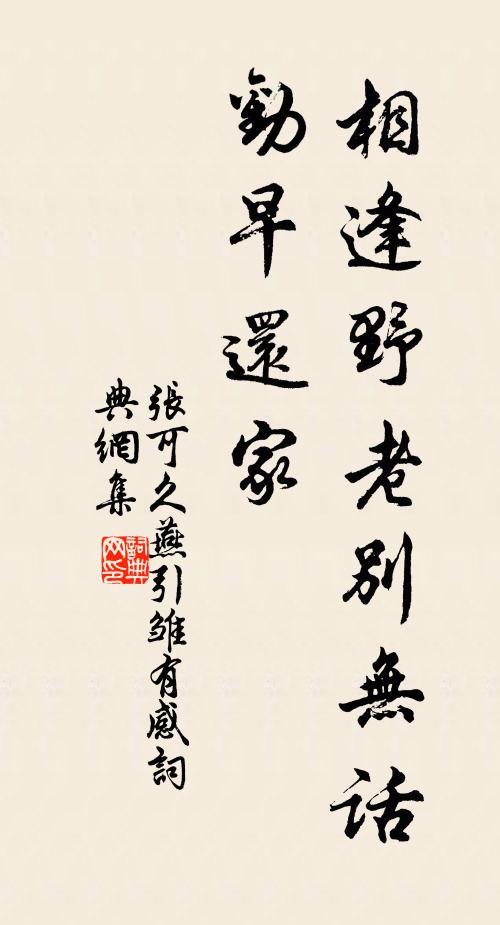 相逢野老別無話
勸早還家
張可久燕引雏有感詞
典網集
詞典
网印